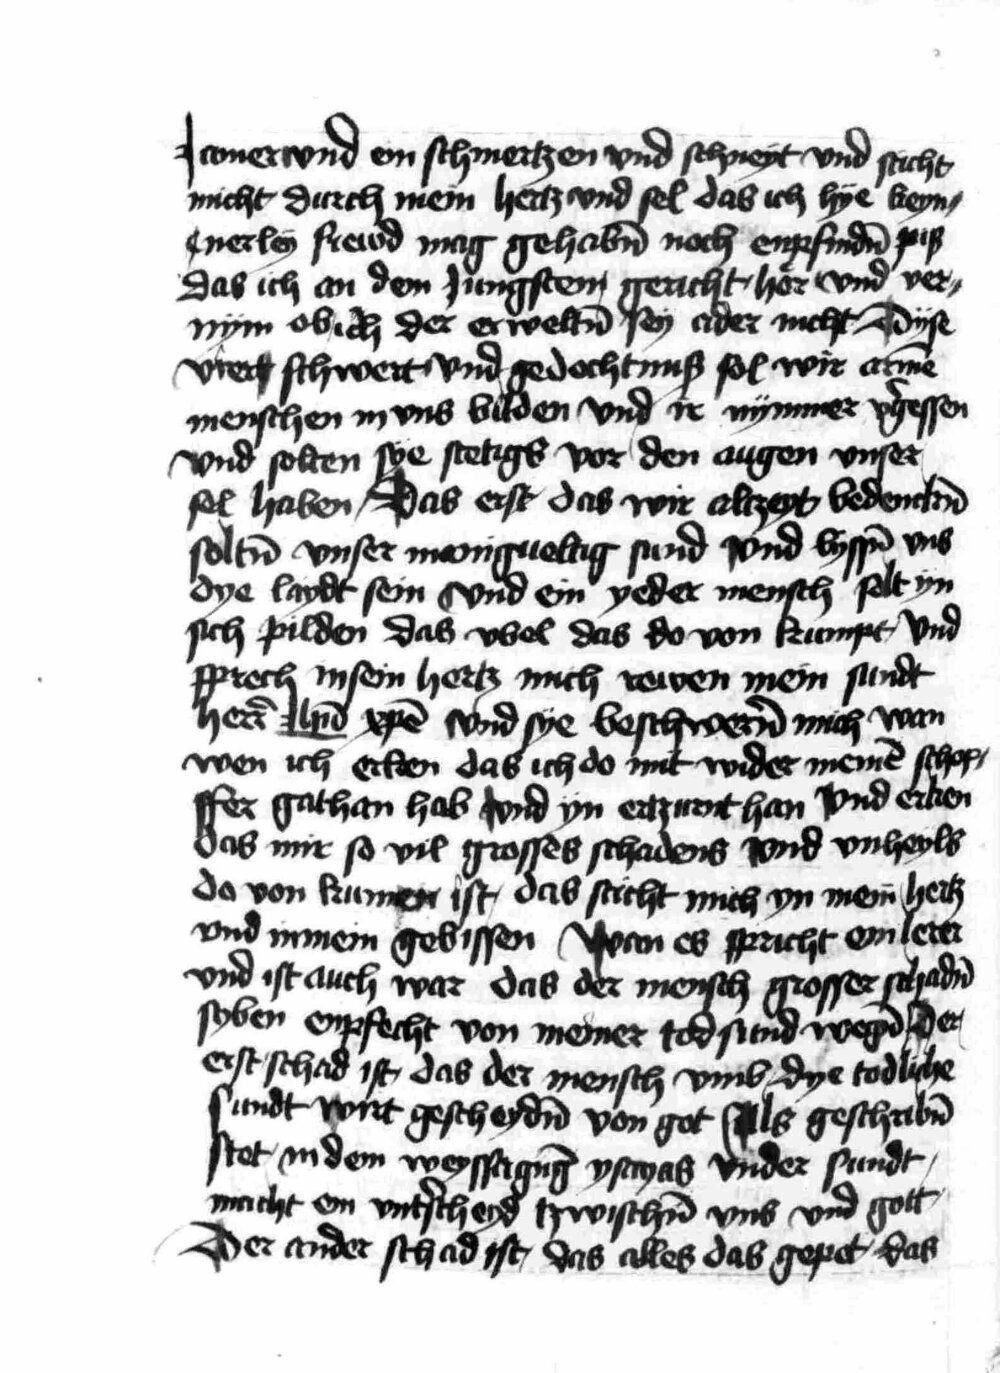 Jamer vnd ein schmertzen vnd schneyt vnd sticht
micht durch mein hertz vnd sel das ich hye keyn⸗
nerley frewd mag gehabn̄ noch enpfindn̄ piß
das ich an dem Jungstem gericht hör vnd ver⸗
nym ob ich der erweltn̄ sey ader nicht Dyse
schwert vnd gedochtnuß sol wir arme
menschen in vns bilden vnd ir nymmer v̉gessen
vnd solten sye stetigs vor den augen vnser
sel haben Das erst das wir altzeyt bedenckn̄
soltn̄ vnser manigueltig sund vnd lyssn̄ vns
dye laydt sein vnd ein yeder mensch solt yn
sich pilden das vbel das do von kumpt vnd
sprech in sein hertz mich rewen mein sundt
herr̄ xp̄e vnd sye beschwern̄ mich wan
wen ich erken das ich do mit wider meinē schof⸗
ffer gathan hab vnd yn ertzurnt han vnd erken
das mir so vil grosses schadens vnd vnheyls
do von kumen ist das sticht mich yn mein hertz
vnd in mein gebissen Wan es spricht ein lerer
vnd ist auch war das der mensch grosser schadn̄
syben enpfecht von meiner tod sund wegn̄ Der
erst schad ist das der mensch vmb dye todliche
sundt wirt gescheydn̄ von got Als geschribn̄
stet in dem weyssagūg ysayas vnder sundt
macht ein vnt̉scheyd tzwischn̄ vns vnd gott
Der ander schad ist das alles das gepet das